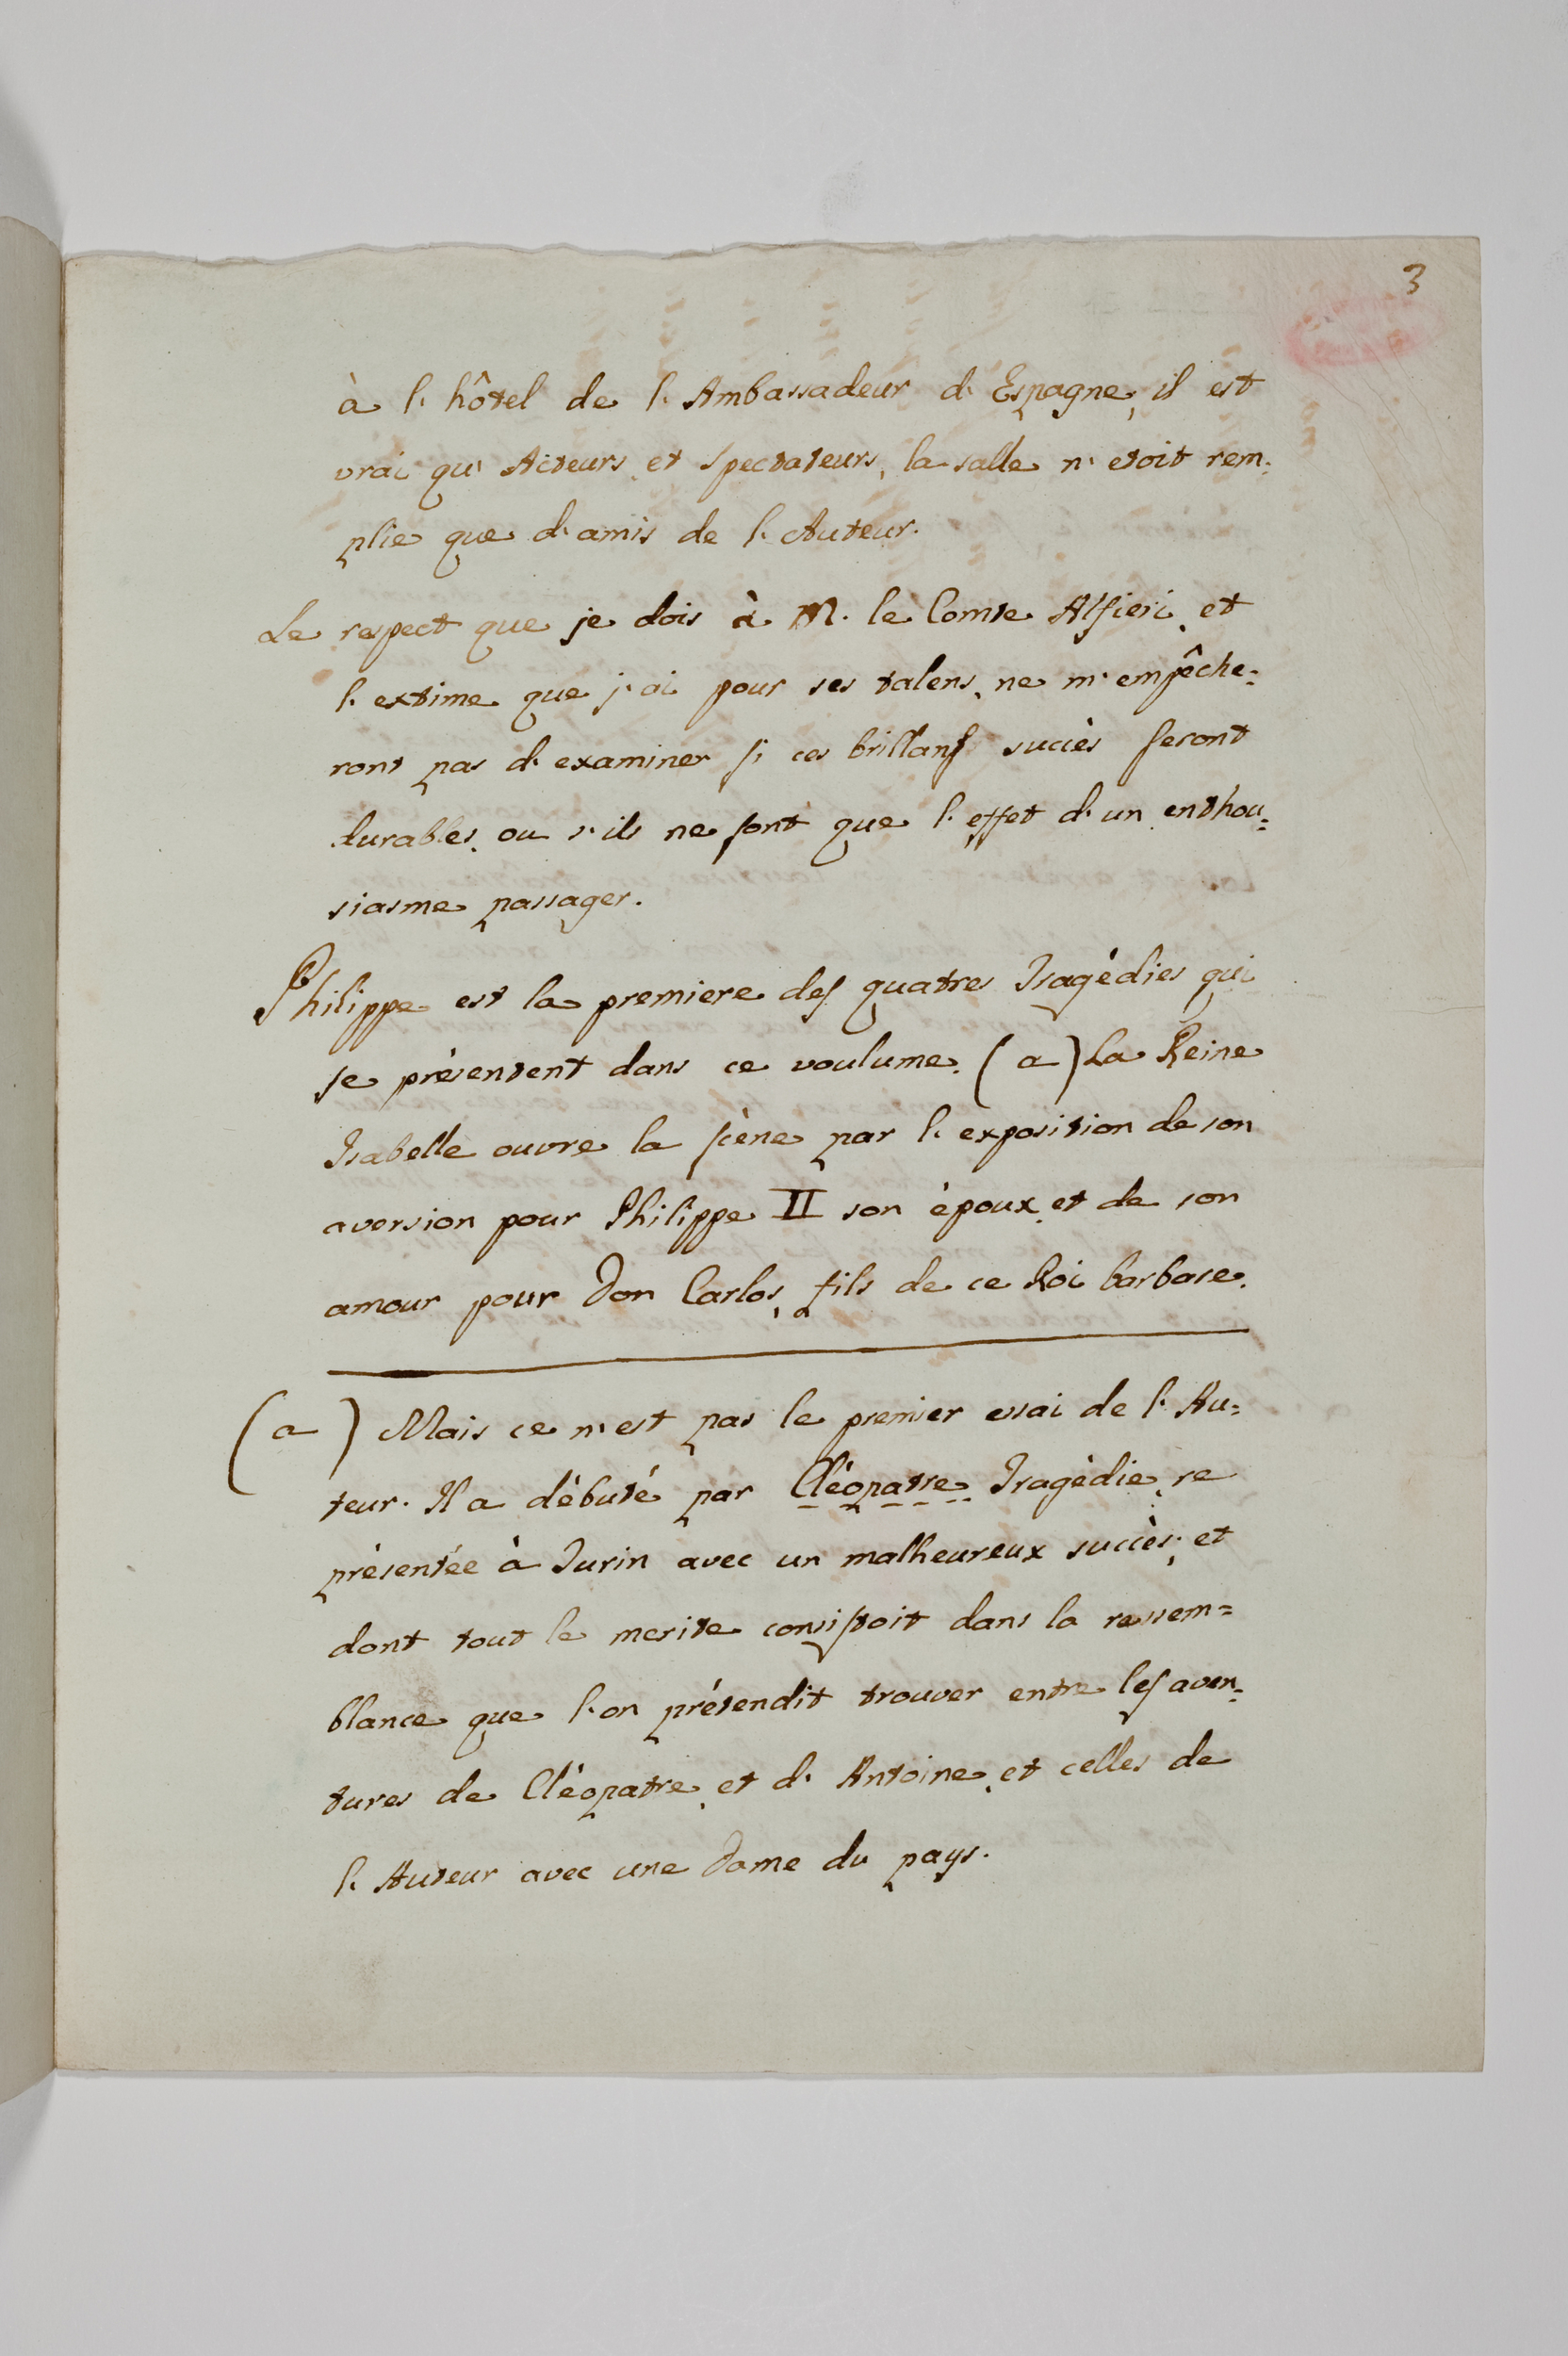 3
à l'hôtel de l'Ambassadeur d'Espagne, il est
vrai qu'Acteurs, et Spectateurs, la salle n'etoit rem=
plie que d'amis de l'Auteur.
Le respect que je dois à M. le Comte Alfieri, et
l'extime que j'ai pour ses talens, ne m'empêche=
ront pas d'examiner si ces brillans succès seront
durables, ou s'ils ne sont que l'effet d'un enthou=
siasme passager.
Philippe est la premiere des quatres Tragédies qui
se présentent dans ce voulume. (a) La Reine
Isabelle ouvre la scène par l'exposition de son
aversion pour Philippe II son époux, et de son
amour pour Don Carlos, fils de ce Roi barbare.
(a) Mais ce n'est pas le premier essai de l'Au=
teur. Il a débuté par Cléopatre Tragédie, re
présentée à Turin avec un malheureux succès, et
dont tout le merite consistoit dans la ressem=
blance que l'on prétendit trouver entre les aven=
tures de Cléopatre, et d'Antoine, et celles de
l'Auteur avec une Dame du pays.